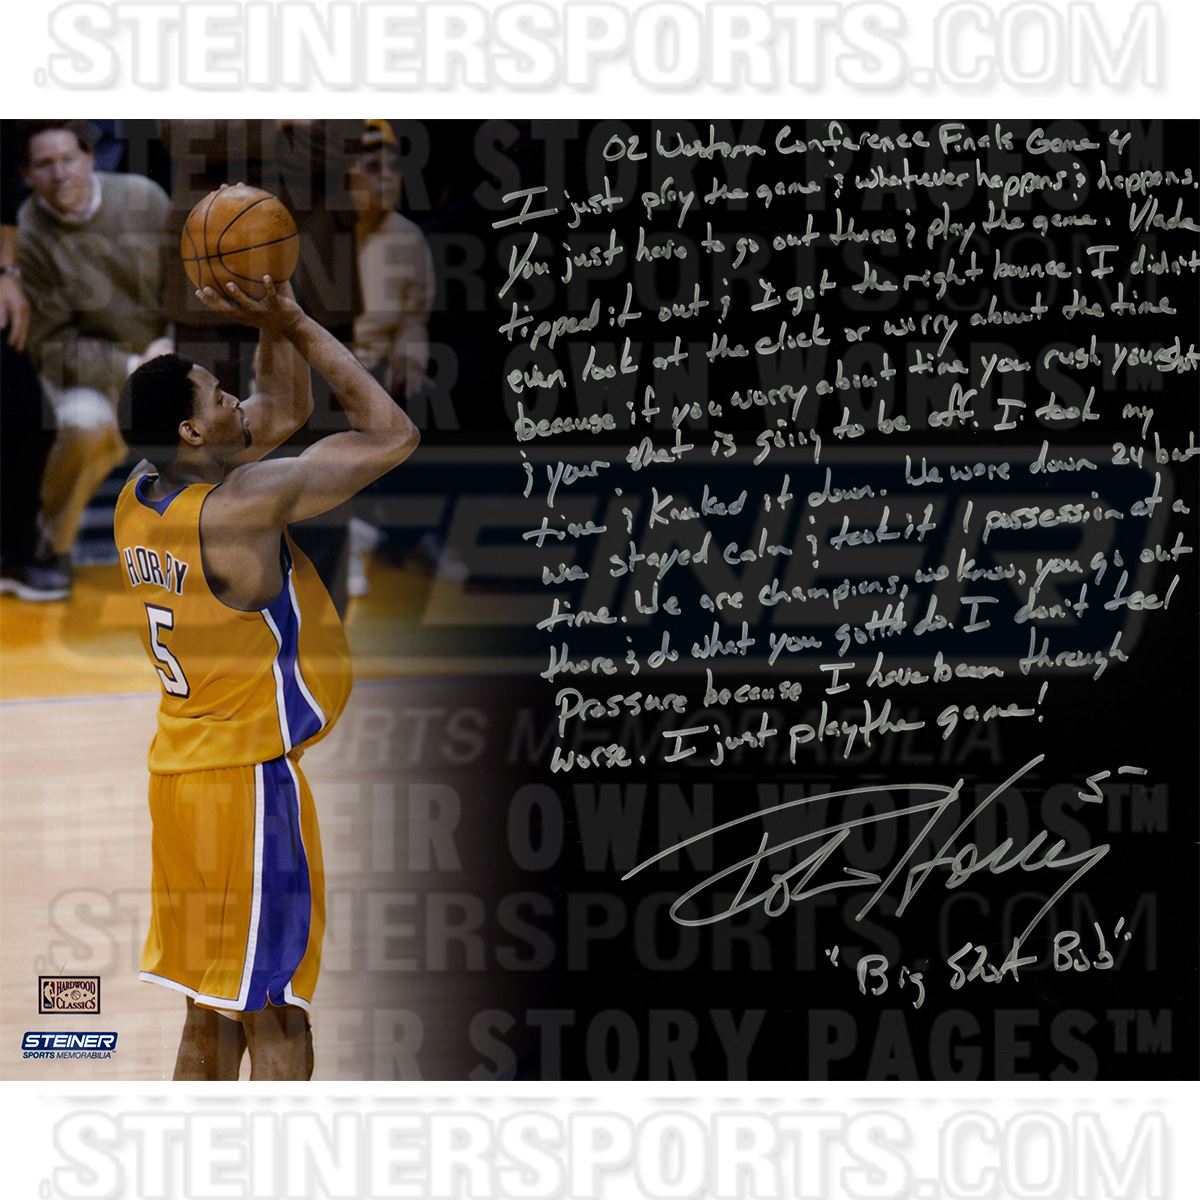 STEINERSPORTS.COM
STEINER STORY PAGES™
02 Western Conference Finals Game 4
I just play the game & whatever happens & happens.
You just have to go out there & play the game. Vlade
tipped it out & I got the right bounce. I didn't
even look at the clock or worry about the time
because if you worry about time you rush your shot
& your shot is going to be off. I took my
time & knocked it down. We were down 24 but
we stayed calm & took it 1 possession at a
time. We are champions, we know, you go out
there & do what you gotta do. I don't feel
Pressure because I have been through
worse. I just play the game!
Robert Horry 5
"Big Shot Bob"
HORRY
5
STEINERSPORTS.COM
IN THEIR OWN WORDS™
STEINER
SPORTS MEMORABILIA
IN THEIR OWN WORDS™
STEINERSPORTS.COM
NBA HARDWOOD
CLASSICS
STEINER
SPORTS MEMORABILIA™
STEINER STORY PAGES™
STEINERSPORTS.COM